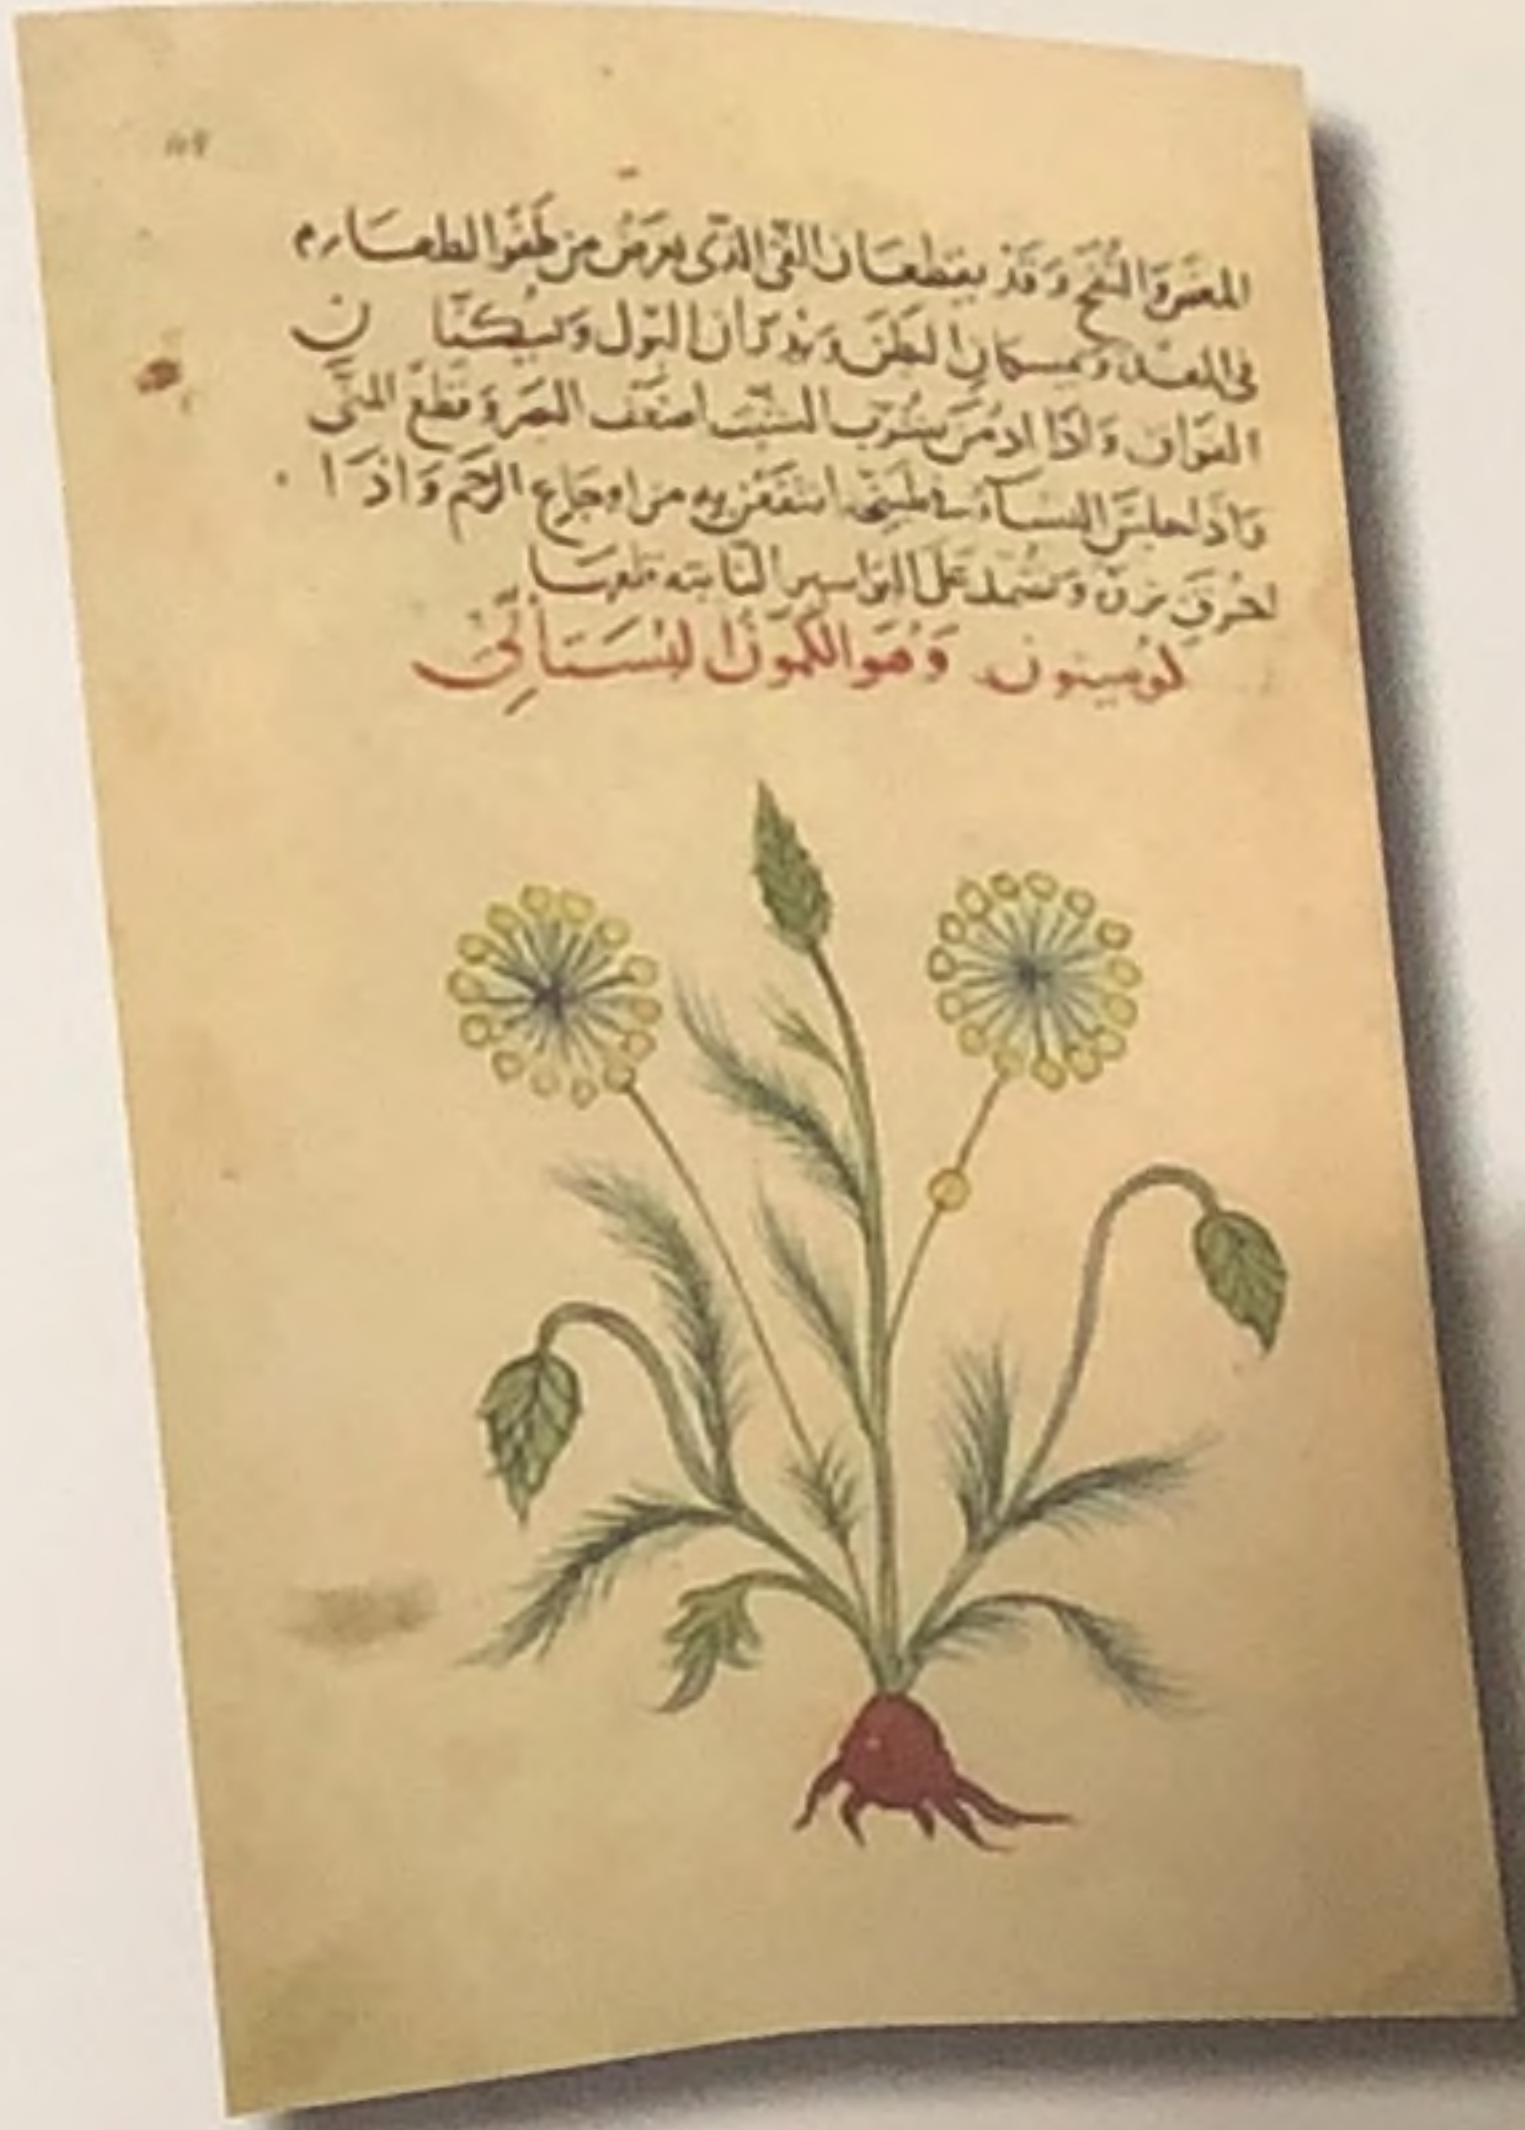 المغس والنفخ وقد يقطعان القى الذى يعرض من طفو الطعام
فى المعدة ويمسكان البطن ويدران البول ويسكنان
الفواق واذا ادمن شرب الشبت اضعف البصر وقطع المنى
واذا جلس النساء فى طبيخه انتفعن به من اوجاع الرحم واذا
احرق بزره وضمد على البواسير الناتية قلعها
وهو الكمون البستانى